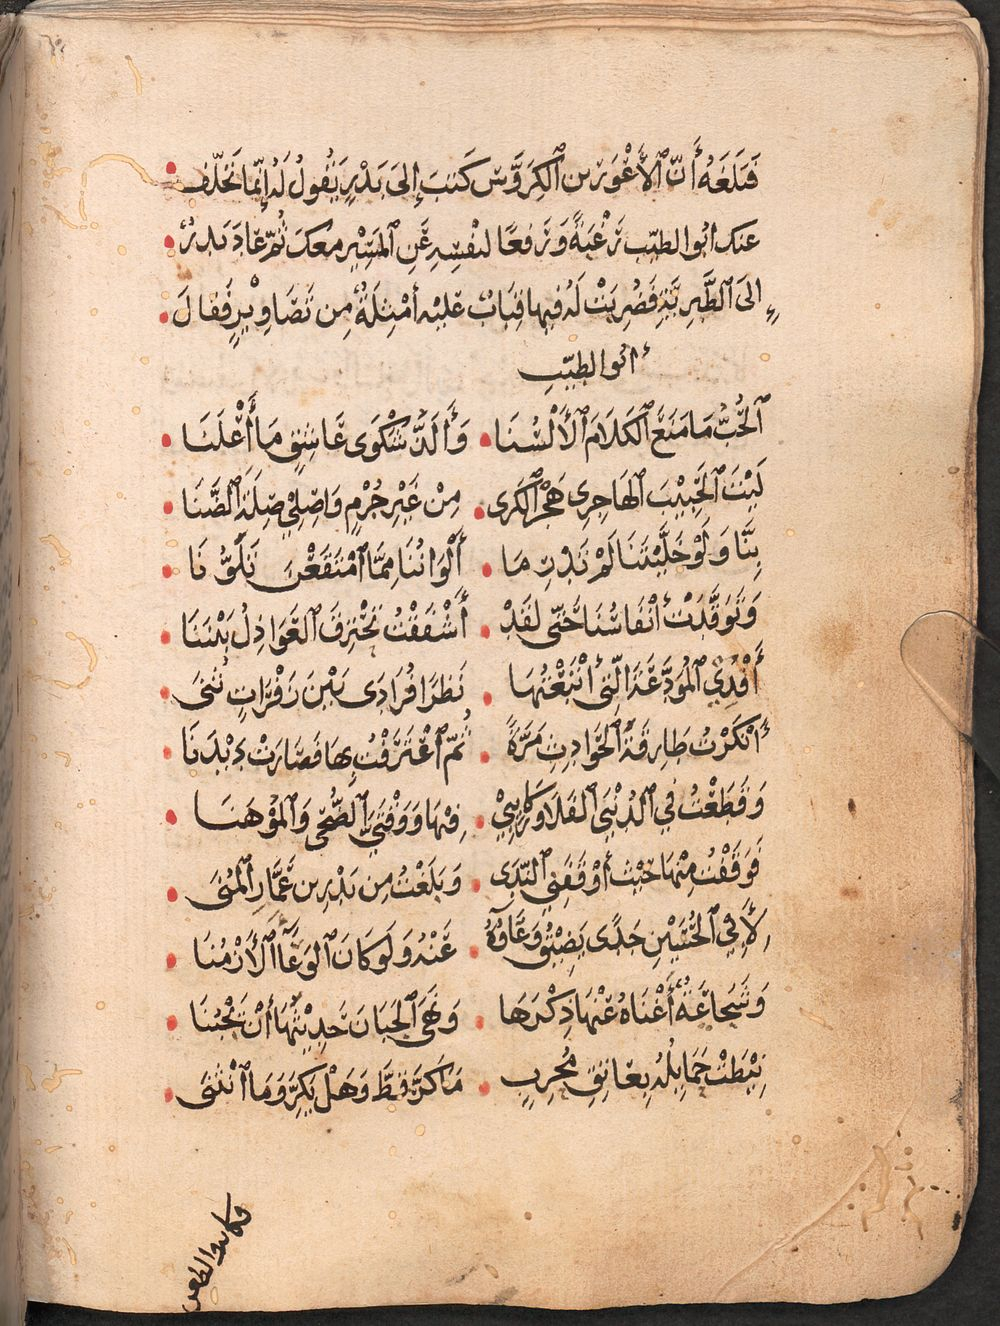 فَبَلَغَهُ أَنَّ ٱلأَعْوَرَ بن ٱلكِرَوَّسِ كَتَبَ إِلىَ بَدْرٍ يَقُولُ لَهُ إِنَّما تَخَلَّفَ
عنك ابُو الطيّب رَغْبَةً وَرَفعًا لنفْسِهِ عَنِ ٱلمَسِيْرِ معَكَ ثُمَّ عَادَ بَدرٌ
إِلىَ ٱلطَّبَرِيَّةِ فَضُرِبَتْ لَهُ فيهَا قِبَابٌ عَليْهَا أَمْثِلَةٌ مِن تَصَاوِيْرٍ فَقَالَ
أبُو الطيّبِ
ٱلحُبُّ مَا مَنَعَ ٱلكَلَامَ ٱلأَلْسُنَا وَأَلَذُّ شَكْوَى عَاشِقٍ مَا أَعْلَنَا
لَيْتَ ٱلحَبِيْبَ ٱلهَاجِرِى هَجْرَ ٱلكَرَى مِنْ غَيْرِ جُرْمٍ وَاصِلِيْ صِلَةَ ٱلضَّنَا
بِنَّا وَلَوْ حَلَّيْتَنَا لَمْ تَدْرِ مَا أَلْوَانُنَا مِمَّا ٱمْتَقَعْنَ تَلَوُّنَا
وَتَوَقَّدَتْ أَنْفَاسُنَا حَتّى لَقَدْ أَشْفَقْتُ تَحْتَرِقُ ٱلعَوَاذِلُ بَيْنَنَا
أَفْدِي ٱلمُوَدِّعَةَ الَّتي أَتْبَعْتُهَا نَظَرًا فُرَادَى بَيْنَ زَفْرَاتٍ ثُنَى
أَنْكَرْتُ طَارِقَةَ ٱلحَوَادِثِ مَرَّةً ثُمَّ ٱعْتَرَفْتُ بِهَا فَصَارَتْ دَيْدَنَا
وَقَطَعْتُ فِي ٱلدُنْيَى ٱلفَلَا وَرَكَائِبِيْ فِيْهَا وَوَقْتَيَّ ٱلضُّحَى وَٱلمَوْهَنَا
فَوَقَفْتُ مِنْهَا حَيْثُ أَوْقَفَنِي ٱلنَّدَى وَبَلَغْتُ مِن بَدْرِ بن عَمَّارِ ٱلمُنَى
لأَبِي ٱلحُسَيْنِ جَدًى يَضِيْقُ وِعَاؤهُ عَنْهُ وَلَو كَانَ ٱلوِعَآءُ ٱلأَزْمُنَا
وَشَجَاعَةٌ أَغْنَاهُ عَنْهَا ذِكْرُهَا وَنَهَى ٱلجَبَانَ حَدِيْثُهَا أَنْ يَجْبُنَا
نِيْطَتْ حَمَايِلُهُ بِعَاتِقِ مُحْرِبٍ مَا كَرَّ قَطُّ وَهَلْ يَكِرُّ وَمَا ٱنْثَنَى
فكانه والطعن